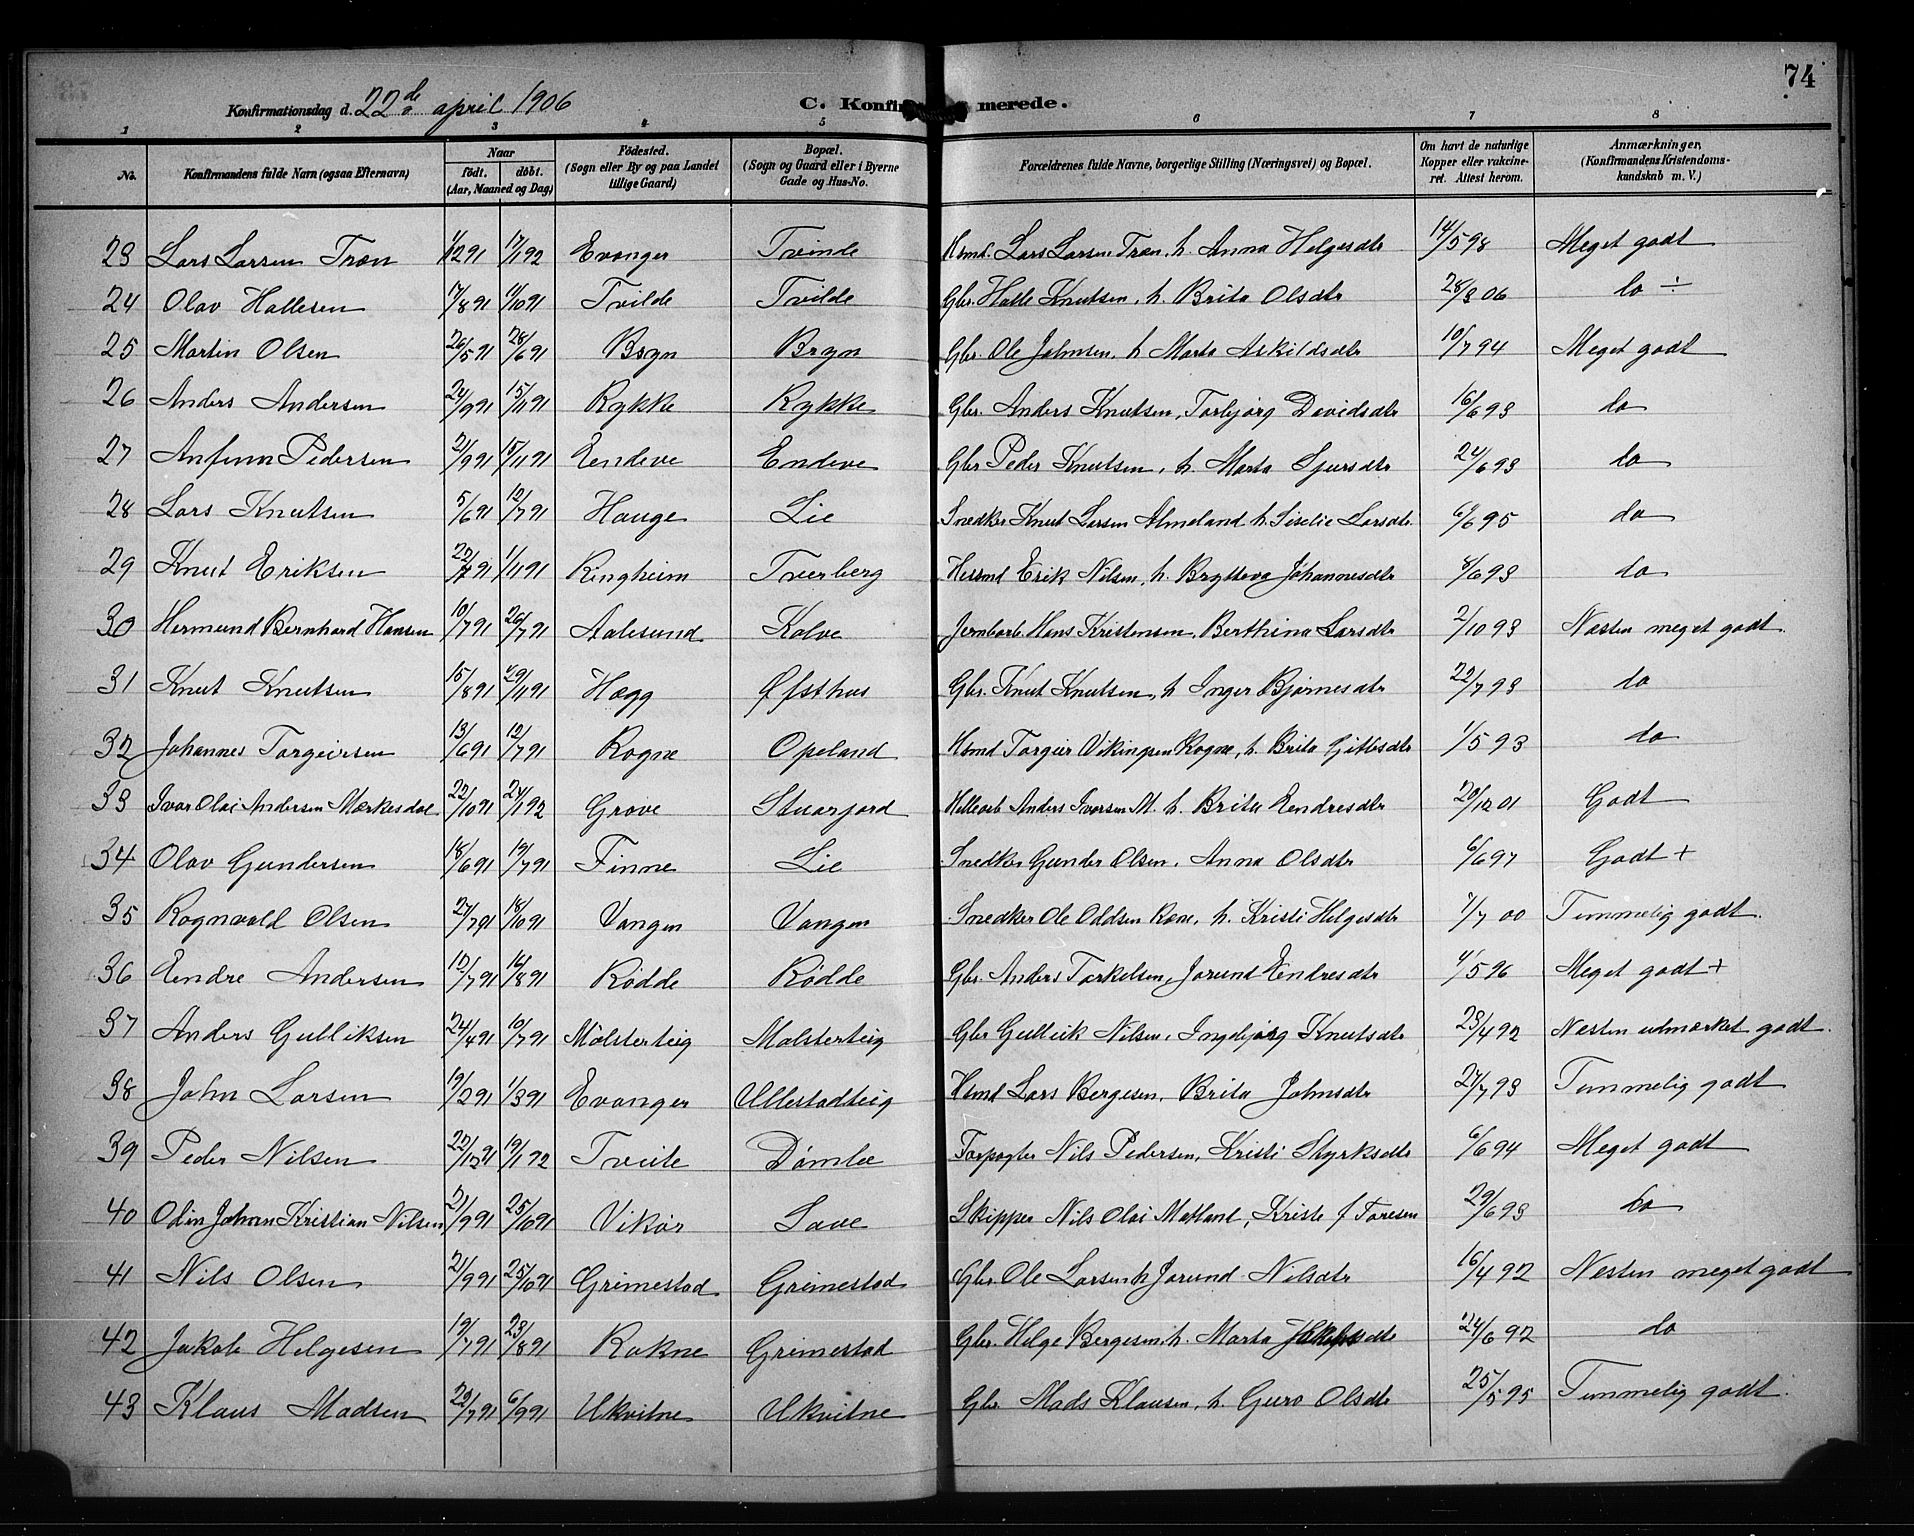 74
Konfirmationsdag d. 22de april 1906 C. Konfirmerede.
1 2 3 4 5 6 7 8
No. Konfirmandens fulde Navn (ogsaa Efternavn) Naar født. døbt. (Aar, Maaned og Dag) Fødested. (Sogn eller By og paa Landet tillige Gaard) Bopæl. (Sogn og Gaard eller i Byerne Gade og Hus-No. Forældrenes fulde Navne, borgerlige Stilling (Næringsvei) og Bopæl. Om havt de naturlige Kopper eller vakcineret. Attest herom. Anmærkninger, (Konfirmandens Kristendomskundskab m. V.)
23 Lars Larsen Træn 1/12 91 17/1 92 Evanger Tvinde Hsmd. Lars Larsen Træn, h. Anna Helgesdtr 14/5 98 Meget godt
24 Olav Hallesen 17/8 91 11/10 91 Tvilde Tvilde Gbr. Halle Knutsen, h. Brita Olsdtr 28/3 06 do ÷
25 Martin Olsen 26/5 91 28/6 91 Bøyn Bryn Gbr. Ole Johnsen, h Marta Askildsdtr 10/7 94 Meget godt
26 Anders Andersen 24/9 91 15/11 91 Rykke Rykke Gbr. Anders Knutsen, Torbjørg Davidsdtr 16/6 93 do
27 Anfinn Pedersen 21/9 91 15/11 91 Eendeve Endeve Gbr Peder Knutsen, h. Marta Sjursdtr 24/6 93 do
28 Lars Knutsen 5/6 91 12/7 91 Hauge Lie Snedker Knut Larsen Almeland h. Siselie Larsdtr. 6/6 95 do
29 Knut Eriksen 22/7 91 1/11 91 Ringheim Tverberg Hsmd Erik Nilsen, h. Brytteva Johannesdtr 8/6 93 do
30 Hermund Bernhard Hansen 10/7 91 26/7 91 Aalesund Kolve Jernbarb Hans Kristensen, Berthina Larsdtr 2/10 93 Næsten meget godt.
31 Knut Knutsen 15/8 91 29/11 91 Hægg Øfsthus Gbr. Knut Knutsen, h Inger Bjørnesdtr 22/7 93 do
32 Johannes Torgeirsen 13/6 91 12/7 91 Rogne Opeland Hsmd Torgier Vikingsen Rogne, h. Brita Gittlesdtr 1/5 93 do
33 Ivar Olai Andersen Mærkesdal 22/10 91 24/1 92 Grove Stuarjord Hellearb Anders Iversen M. h. Brita Eendresdtr 20/12 01 Godt
34 Olav Gundersen 18/6 91 19/7 91 Finne Lie Snedker Gunder Olsen, Anna Olsdtr 6/6 97 Godt +
35 Rognvald Olsen 27/7 91 18/10 91 Vangen Vangen Snedker Ole Oddsen Rene, h. Kristi Helgesdtr 7/7 00 Temmelig godt.
36 Eendre Andersen 12/7 91 16/8 91 Rødde Rødde Gbr. Anders Torkelsen, Jorund Eendresdtr 4/5 96 Meget godt +
37 Anders Gulliksen 24/4 91 10/7 91 Mølsterteig Mølsterteig Gbr Gullik Nilsen, Ingebjørg Knutsdtr 23/4 92 Næsten utmærket godt.
38 John Larsen 19/2 91 1/3 91 Evanger Ullestadteig Hsmd Lars Bergesen, Brita Johnsdtr 27/7 93 Temmelig godt
39 Peder Nilsen 22/12 91 19/1 92 Tveite Dømle Forpagter Nils Pedersen, Kristi Styrksdtr 6/6 94 Meget godt
40 Odin Johan Kristian Nilsen 21/9 91 25/10 91 Vikør Save Skipper Nils Olai Matland, Kristi f Toresen 29/6 93 do
41 Nils Olsen 21/9 91 25/10 91 Grimestad Grimestad Gbr. Ole Larsen h Jorund Nilsdtr 16/4 92 Næsten meget godt
42 Jakob Helgesen 19/7 91 23/8 91 Rokne Grimestad Gbr. Helge Bergesen h. Marta 24/6 92 do
43 Klaus Madsen 22/7 91 6/9 91 Ukvitne Ukvitne Gbr Mads Klausen, h. Guro Olsdtr 25/5 95 Temmelig godt.